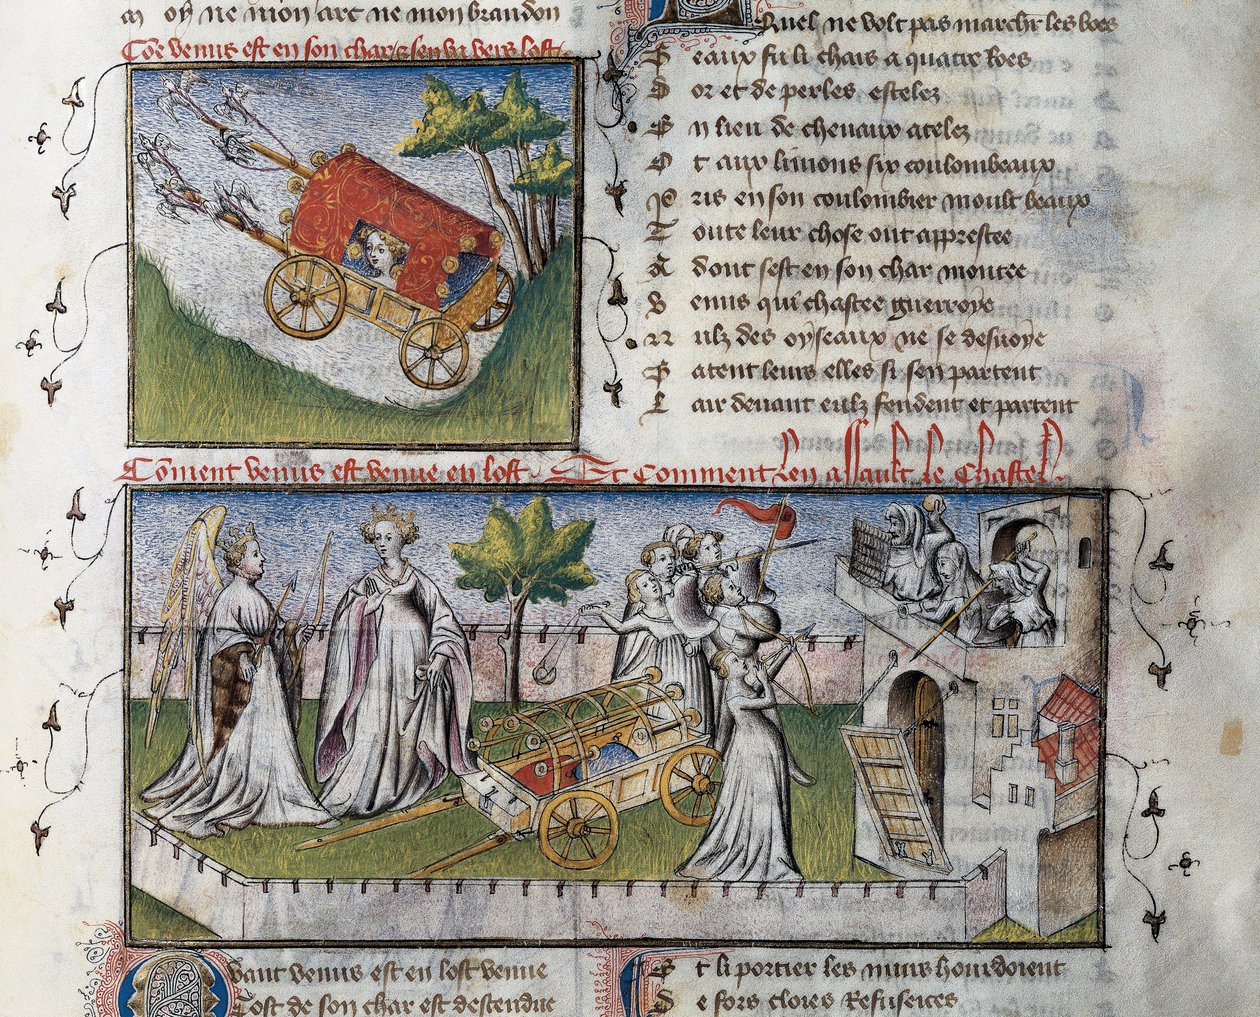 oy ne mon arc ne mon brandon
Coe venus est en son char et sen va vers lost
Quel ne volt pas marchier les boes
Beaux fu li chars a quatre roes
Dor et de perles estelez
En lieu de chevaux atelez
Ot aux limons six coulombeaux
Pris en son coulombier moult beaux
Toute leur chose ont apprestee
Adont sest en son char montee
Venus qui chastee guerroye
Nulz des oyseaux ne se desvoye
Batent leurs elles si sen partent
Lair devant eulz fendent et partent
Coment venus est venue en lost
Et Comment len assault le Chastel
vant venus est en lost venue
Tost de son char est descendue
Et li portier les murs hourdoient